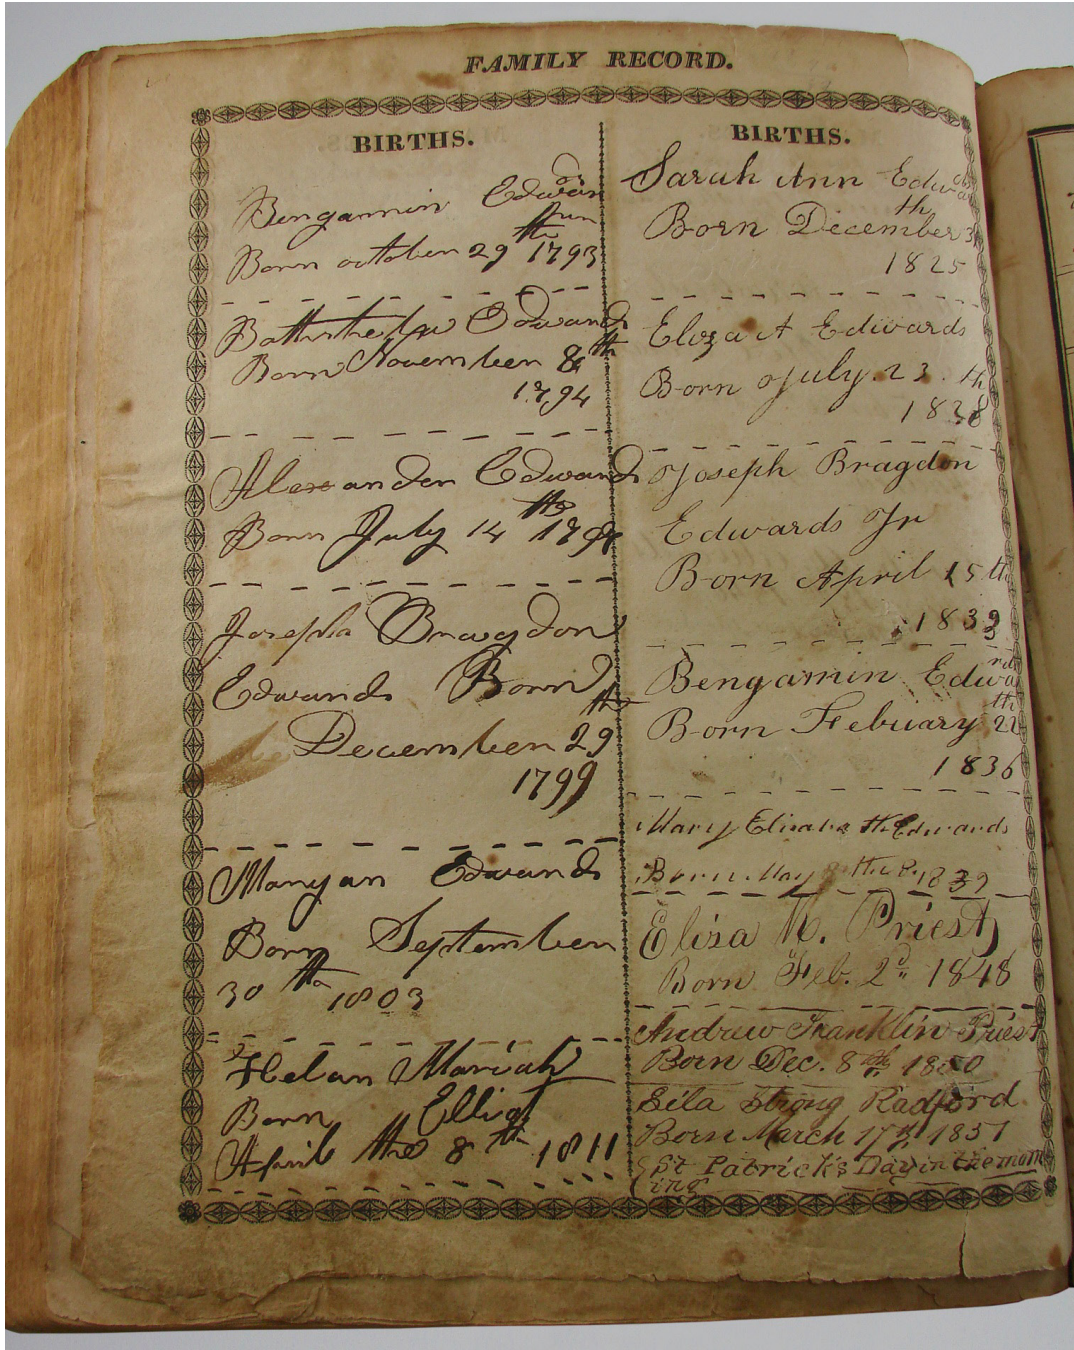 FAMILY RECORD.
BIRTHS.
Bengammin Edwards
Jun
Born october 29th 1793
Edwards
Born November 8th
1794
Alexander Edwards
Born July 14th
Joseph Bragdon
Edwards Born
December 29th
1799
Maryan Edwards
Born September
30th 1803
Helan Mariah
Born Elliot
April the 8th 1811
BIRTHS.
Sarah Ann Edwards
Born December th
1825
Eliza A Edwards
Born July 23.th
Joseph Bragdon
Edwards Jr
Born April 15th
1833
Bengamin Edward
Born Febuary 22th
1836
Mary Elizabeth Edwards
Born May 8th 1839
Eliza M. Priest
Born Feb. 2d. 1848
Andraw Franklin Priest
Born Dec. 8th 1850
Strong Radford
Born March 17th
St Patrick's Day in the morn
ing